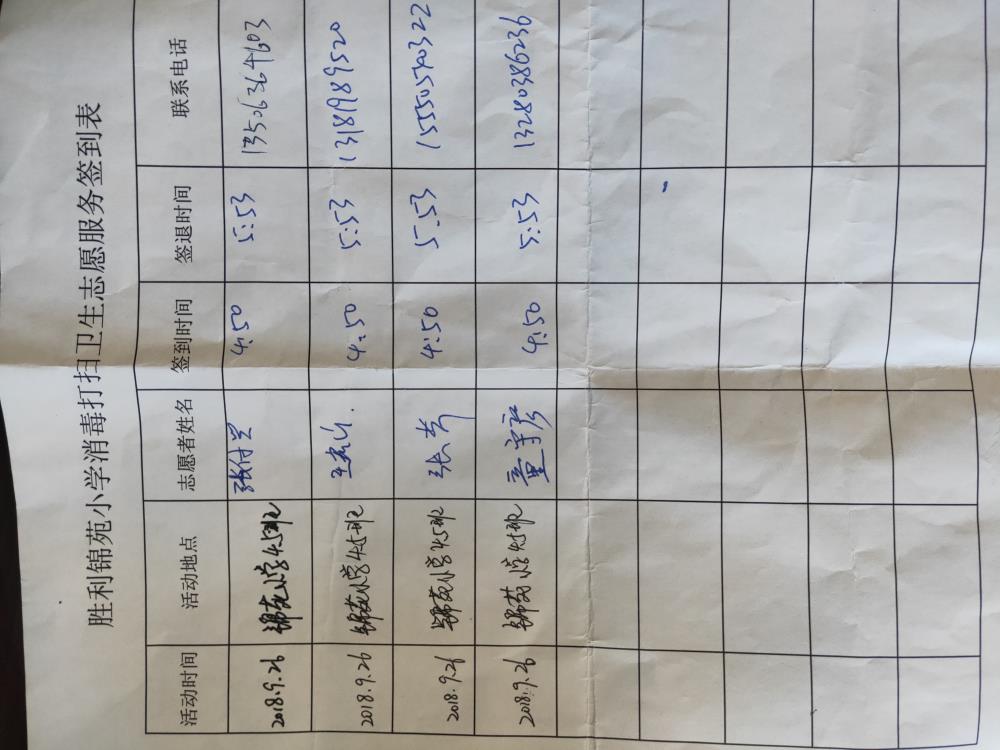 胜利锦苑小学消毒打扫卫生志愿服务签到表
活动时间 活动地点 志愿者姓名 签到时间 签退时间 联系电话
2018.9.26 锦苑小学4.5班 张付兰 4:50 5:53 13506364603
2018.9.26 锦苑小学4.5班 4:50 5:53 13181989520
2018.9.26 锦苑小学4.5班 张 4:50 5:53 15550540322
2018.9.26 锦苑小学4.5班 童宇彦 4:50 5:53 13280386236